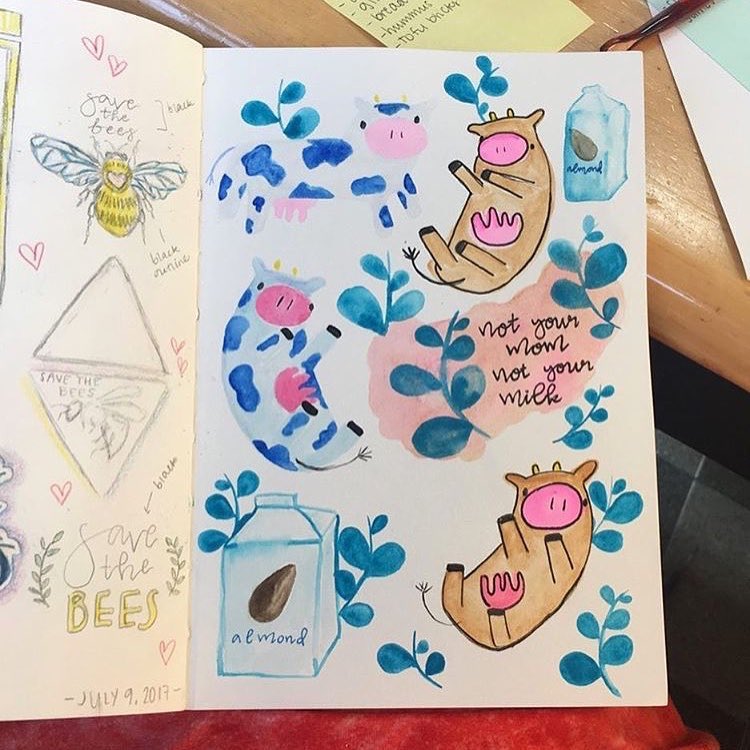 bread
-hummus
-tofu bricks
save
the
bees
black
black
outline
SAVE THE
BEES
black
save
the
BEES
-JULY 9, 2017-
almond
not your
mom
not your
milk
almond